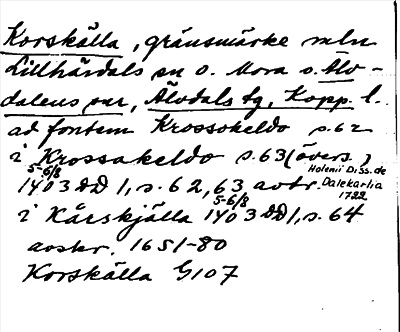 Korskälla, gränsmärke mln
Lillhärdals sn o. Mora o. Älv-
dalens snr, Älvdals tg, Kopp. l.
ad fontem Krossokeldo s. 62
i Krossakeldo s. 63 (övers.)
1403 5-6/8 DD 1, s. 62, 63 avtr. Holenii Diss. de Dalekarlia 1722
i Kårskjälla 1403 5-6/8 DD 1, s. 64
avskr. 1651-80
Korskälla G107